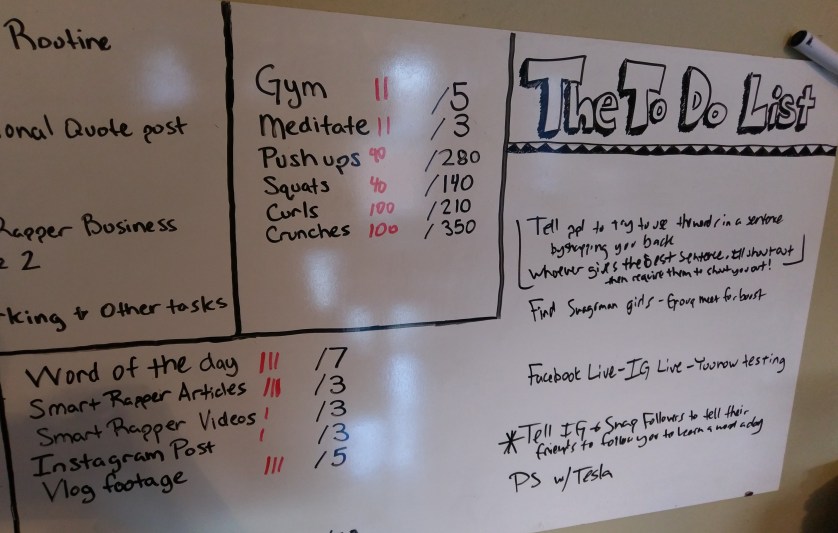 Routine
onal Quote post
Rapper Business
2
king & Other tasks
Gym 11 /5
Meditate 11 /3
Push ups 90 /280
Squats 40 /140
Curls 100 /210
Crunches 100 /350
Word of the day III /7
Smart Rapper Articles III /3
Smart Rapper Videos I /3
Instagram Post I /3
Vlog footage III /5
The To Do List
Tell ppl to try to use the word in a sentence
by snapping you back
whoever gives the best sentence, I'll shout out
then require them to shout you out!
Find girls - meet for boost
Facebook Live - IG Live - Younow testing
*Tell IG & Snap Followers to tell their
friends to follow you to learn a word a day
PS w/ Tesla